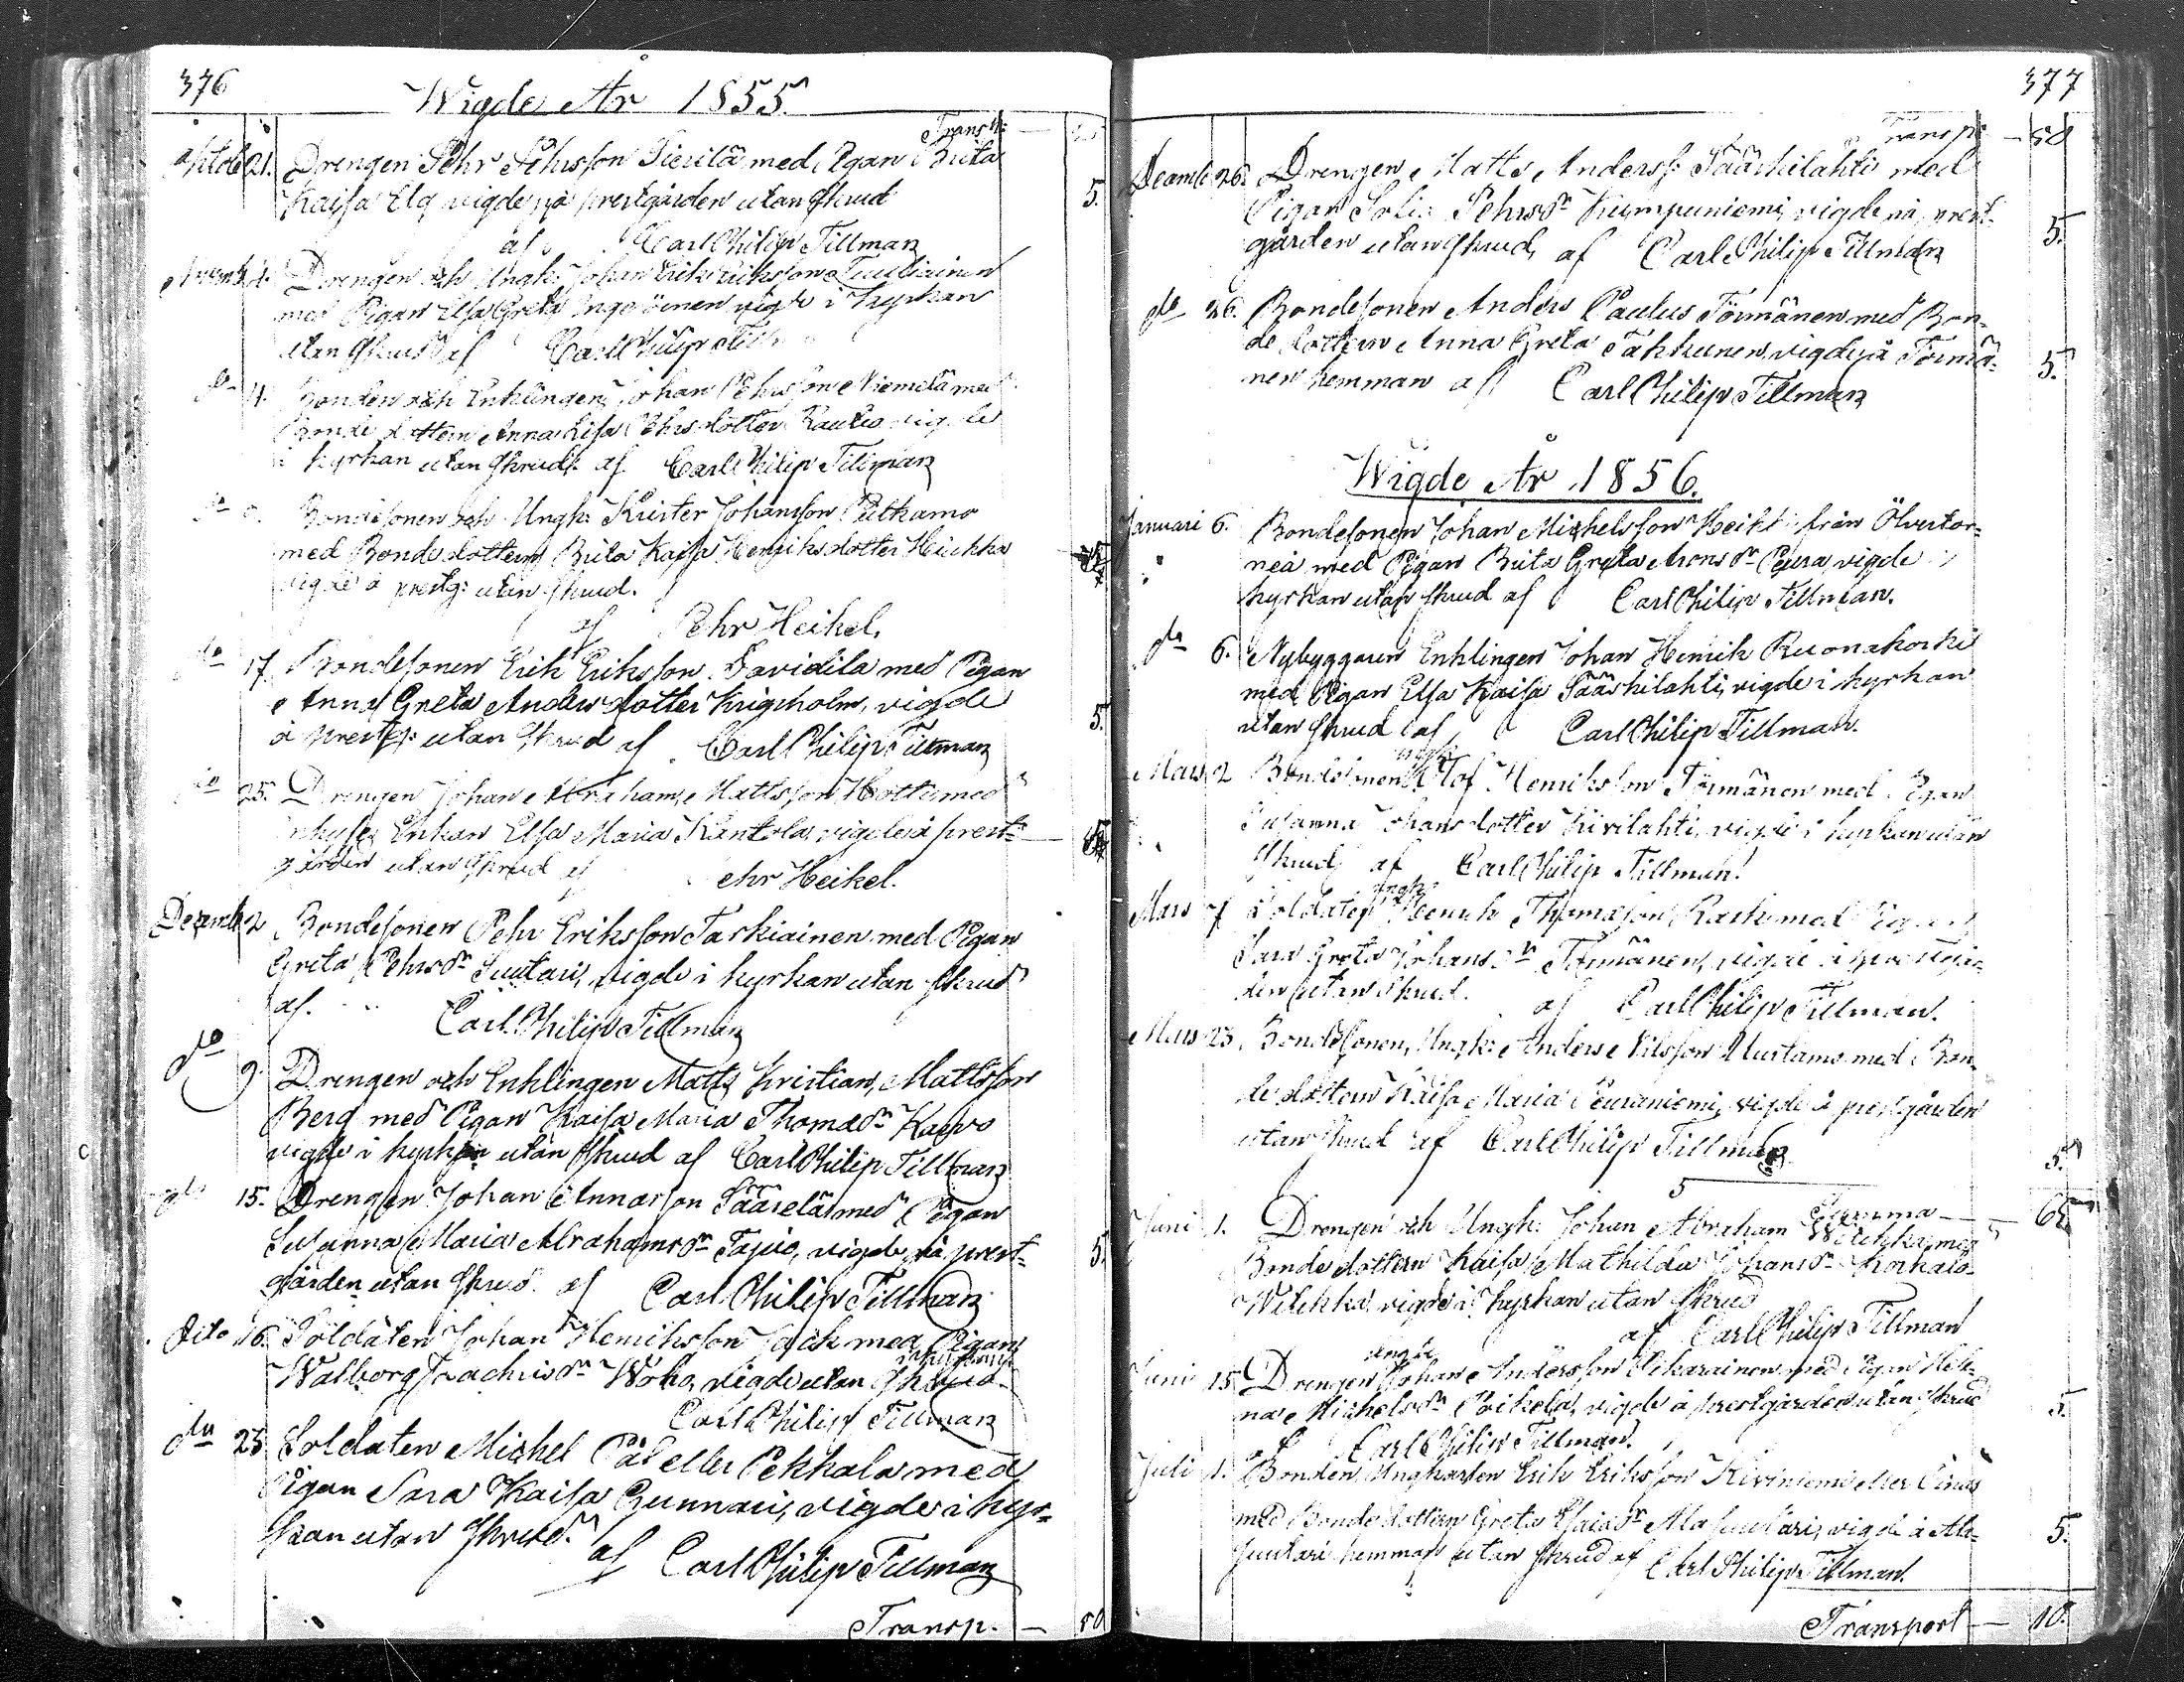 376
Wigde År 1855.
Transp: —
Octob 21. Drengen Pehr Pehrsson Pierilä med Pigan Brita
Kaisa Elg vigde på prestgården utan skrud 5.
af Carl Philip Tillman
Novemb 4. Drengen och Ungk: Johan Erik Eriksson Tuuliainen
med Pigan Elsa Greta vigde i kyrkan
utan skrud af Carl Philip Till
do 4. Bonden och Enklingen Johan Pehrsson Niemelä med
Bondedottern Anna Lisa Pehrsdotter Rautio vigde
i kyrkan utan skrud af Carl Philip Tillman
do Bondesonen och Ungk: Krister Johansson Putkamo
med Bondedottern Brita Kaisa Henriksdotter Heickka
vigde å prestg: utan skrud.
af Pehr Heikel.
do 17. Bondesonen Erik Eriksson Davidila med Pigan
Anna Greta Andersdotter Krigsholm, vigde
å prestg: utan skrud af Carl Philip Tillman 5.
do 25. Drengen Johan Abraham Mattsson Hottu med
inhyses Enkan Elsa Maria Kantola, vigde å prest-
gården utan skrud af ehr Heikel.
Dezemb 2 Bondesonen Pehr Eriksson Taskiainen med Pigan
Greta Pehrsdr Suutari, vigde i kyrkan utan skrud
af. Carl Philip Tillman
do 9. Drengen och Enklingen Matts Kristian Mattsson
Berg med Pigan Kaisa Maria Thomædr Karvo
vigde i kyrkan utan skrud af Carl Philip Tillman
do 15. Drengen Johan Annasson Sääselä med Pigan
Susanna Maria Abrahamsdr Tapio, vigde på prest-
gården utan skrud. af Carl Philip Tillman 5.
dito 16. Soldaten Johan Henriksson Jack med Pigan
Walborg Zachrisdr Woho, vigde utan skrud
Carl Philip Tillman
do 25 Soldaten Michel Pål eller Pekkala med
Pigan Sara Kaisa Gunnari, vigde i kyr-
kan utan skrud.
af Carl Philip Tillman
Transp. — 50
377
Transp: — 50
Decemb 26. Drengen Matts Anderss: Sääskilahti med
Pigan Sofia Pehrsdr Kumpuniemi vigde på prest-
gården utan skrud, af Carl Philip Tillman 5.
do 26. Bondesonen Anders Paulus Törmänen med Bon-
de dottern Anna Greta Takkunen, vigde på Törmä-
nen hemman af Carl Philip Tillman 5.
Wigde År 1856.
Januari 6. Bondesonen Johan Michelsson Heikki från Öfvertor-
neå med Pigan Brita Greta Aronsdr Peura vigde i
kyrkan utan skrud af Carl Philip Tillman.
do 6. Nybyggaren Enklingen Johan Henrik Ruonakoski
med Pigan Elsa Kaisa Sääskilahti, vigde i kyrkan
utan skrud af Carl Philip Tillman.
Mars 2 Bondesonen Olof Henriksson Törmänen med Pigan
Susanna Johansdotter Kivilahti, vigde i kyrkan utan
skrud af Carl Philip Tillman!
Mars 7 Soldaten ungk: Henrik Thomasson Rask med Pigan
Sara Greta Johansdr Törmänen, vigde å prestgår-
den utan skrud. af Carl Philip Tillman.
Mars 23. Bondesonen, Ungk: Anders Nilsson Mustamo med Bon-
de dottern Kaisa Maria Peuraniemi, vigde å prestgården
utan skrud af Carl Philip Tillman 5.
Summa — 65
Juni 1. Drengen och Ungk: Johan Abraham Witikka med
Bonde dottern Kaisa Mathilda Johansdr Korkalo-
Witikka, vigde i kyrkan utan skrud
af Carl Philip Tillman
Juni 15 Drengen ungk: Johan Andersson Pekarainen med Pigan Hele-
na Michelsdr Poikela, vigde å prestgården utan skrud 5.
Carl Philip Tillman.
Juli 1. Bonden Ungkarlen Erik Eriksson Kiviniemi eller
med Bonde dottern Greta Esaiadr Alasuutari, vigde å Ala-
suutari hemman utan skrud af Carl Philip Tillman. 5.
Transport — 10.